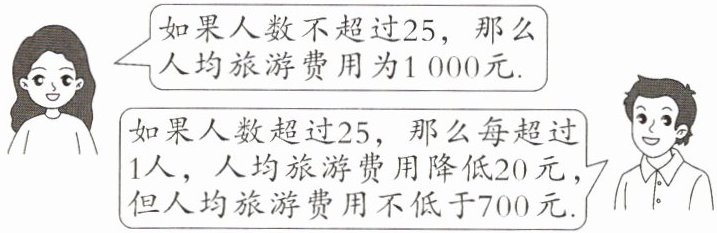 如果人数不超过25，那么
人均旅游费用为1 000元.
如果人数超过25，那么每超过
1人，人均旅游费用降低20元，
但人均旅游费用不低于700元.